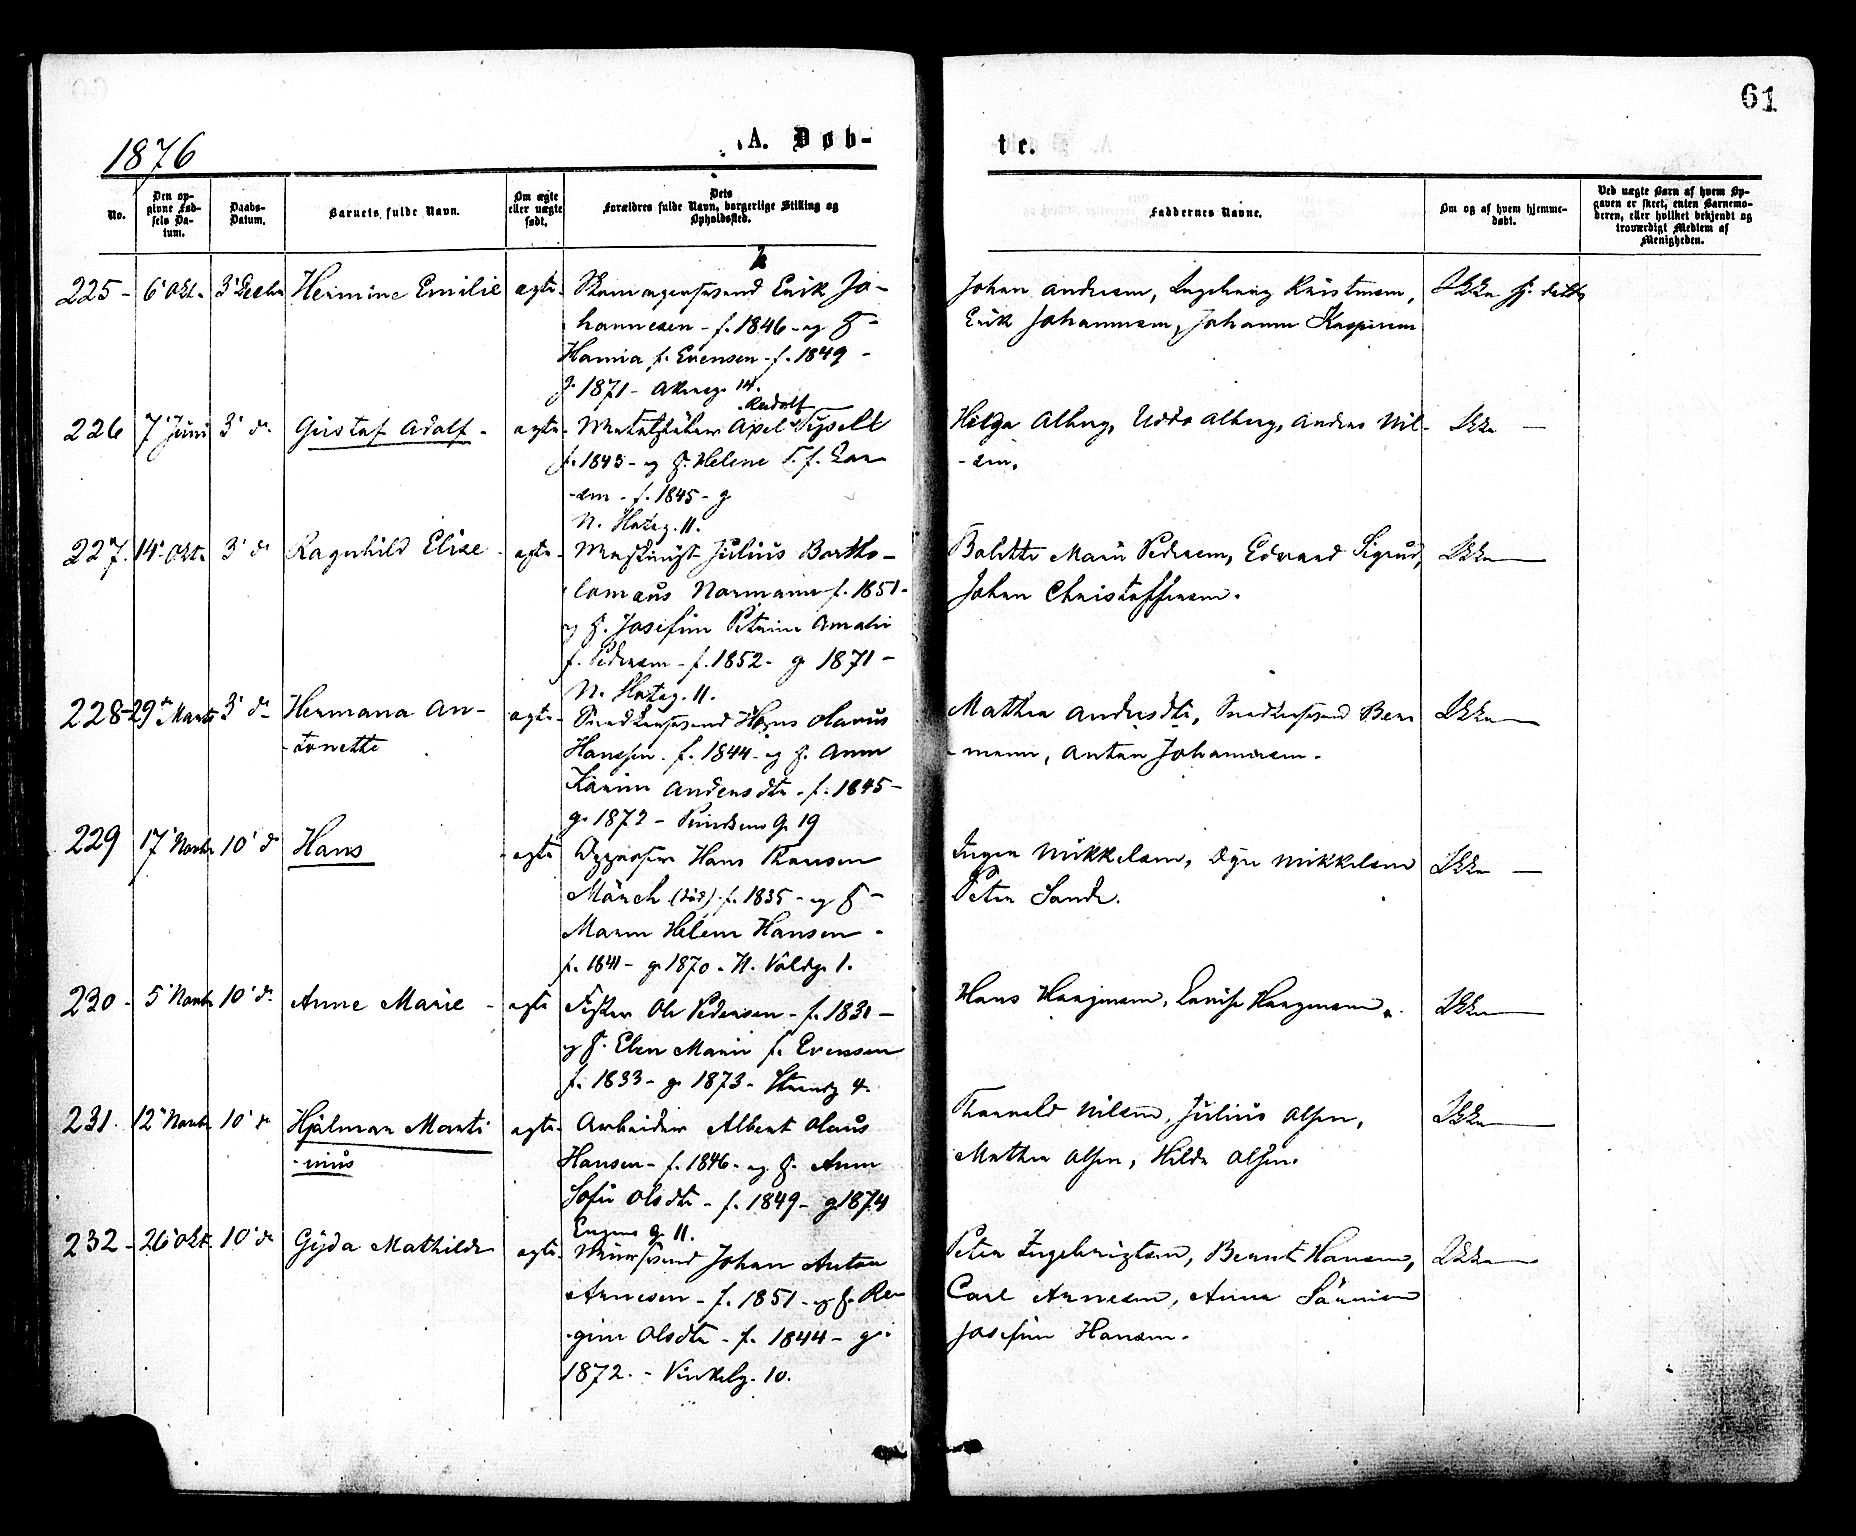 61
1876
A. Døb-
te.
No.
Den op-
givne Fød-
sels Da-
tum.
Daabs-
Datum.
Barnets fulde Navn.
Om ægte
eller uægte
født.
Dets
Forældres fulde Navn, borgerlige Stilling og
Opholdssted.
Faddernes Navne.
Om og af hvem hjemme-
døbt.
Ved uægte Barn af hvem Op-
gaven er skeet, enten Barnemo-
deren, eller hvilket bekjendt og
troværdigt Medlem af
Menigheden.
225 - 6' Okt. 3' Decbr Hermine Emilie ægte Erik Jo-
hannesen - f. 1846 - og H
Hannia f. Evensen - f. 1849 -
g. 1871 - Akersg. 14.
Johan Andersen, Ingeborg Kristensen,
Erik Johannesen, Johanne Kaspersen
Ikke
226 7' Juni 3' d. Gustaf Adolf - ægte Axel Rudolf
f. 1845 - og H. Helene T. f. Lar-
sen - f. 1845 - g
N. Hatteg. 11.
Helga Alberg, Udda Alberg, Anders Nil-
sen.
Ikke
227. 14' Okt. 3' d Ragnhild Elise ægte Maskinist Julius Bartho-
lomæus Normann f. 1851 -
og H. Josefine Petrine Amalie
f. Pedersen - f. 1852 - g 1871 -
N. Hatteg. 11.
Bolette Marie Pedersen, Edvard Sigrud,
Johan Christoffersen.
Ikke
228 29' Marts 3' d. Hermana An-
tonette
ægte Snedkersvend Hans Olavus
Hanssen - f. 1844 - og H. Anne
Karine Andersdtr - f. 1845 -
g. 1872 - G. 19
Mathea Andersdtr, Snedkersvend Ber-
mann, Anton Johannesen.
Ikke
229 17' Novbr 10' d Hans ægte Hans
Mörch (död) f. 1835 - og H -
Maren Helene Hansen -
f. 1841 - g 1870 - N. Voldg. 1.
Inger Mikkelsen, Mikkelsen
Peter Sande.
Ikke
230 - 5' Novbr 10' d. Anne Marie - ægte Fisker Ole Pedersen - f. 1831 -
og H. Elen Marie f. Evensen
f. 1833 - g. 1873 - Strandg 4.
Hans Haagensen, Lovise Haagensen.
Ikke
231. 12' Novbr 10' d Hjalmar Marti-
nius
ægte Arbeider Albert Olaus
Hansen - f. 1846 - og H. Anne
Sofie Olsdtr - f. 1849 - g 1874
Engens G. 11.
Thorvald Nilsen, Julius Olsen,
Mathea Olsen, Hilda Olsen.
Ikke
232 - 26' Okt. 10' d Gyda Mathilde ægte Murersvend Johan Anton
Arnesen - f. 1851 - og H. Re-
gine Olsdtr - f. 1844 - g.
1872. - Vinkelg. 10.
Peter Ingebrigtsen, Bernt Hansen,
Carl Arnesen, Anna Sörensen
Josefine Hansen.
Ikke